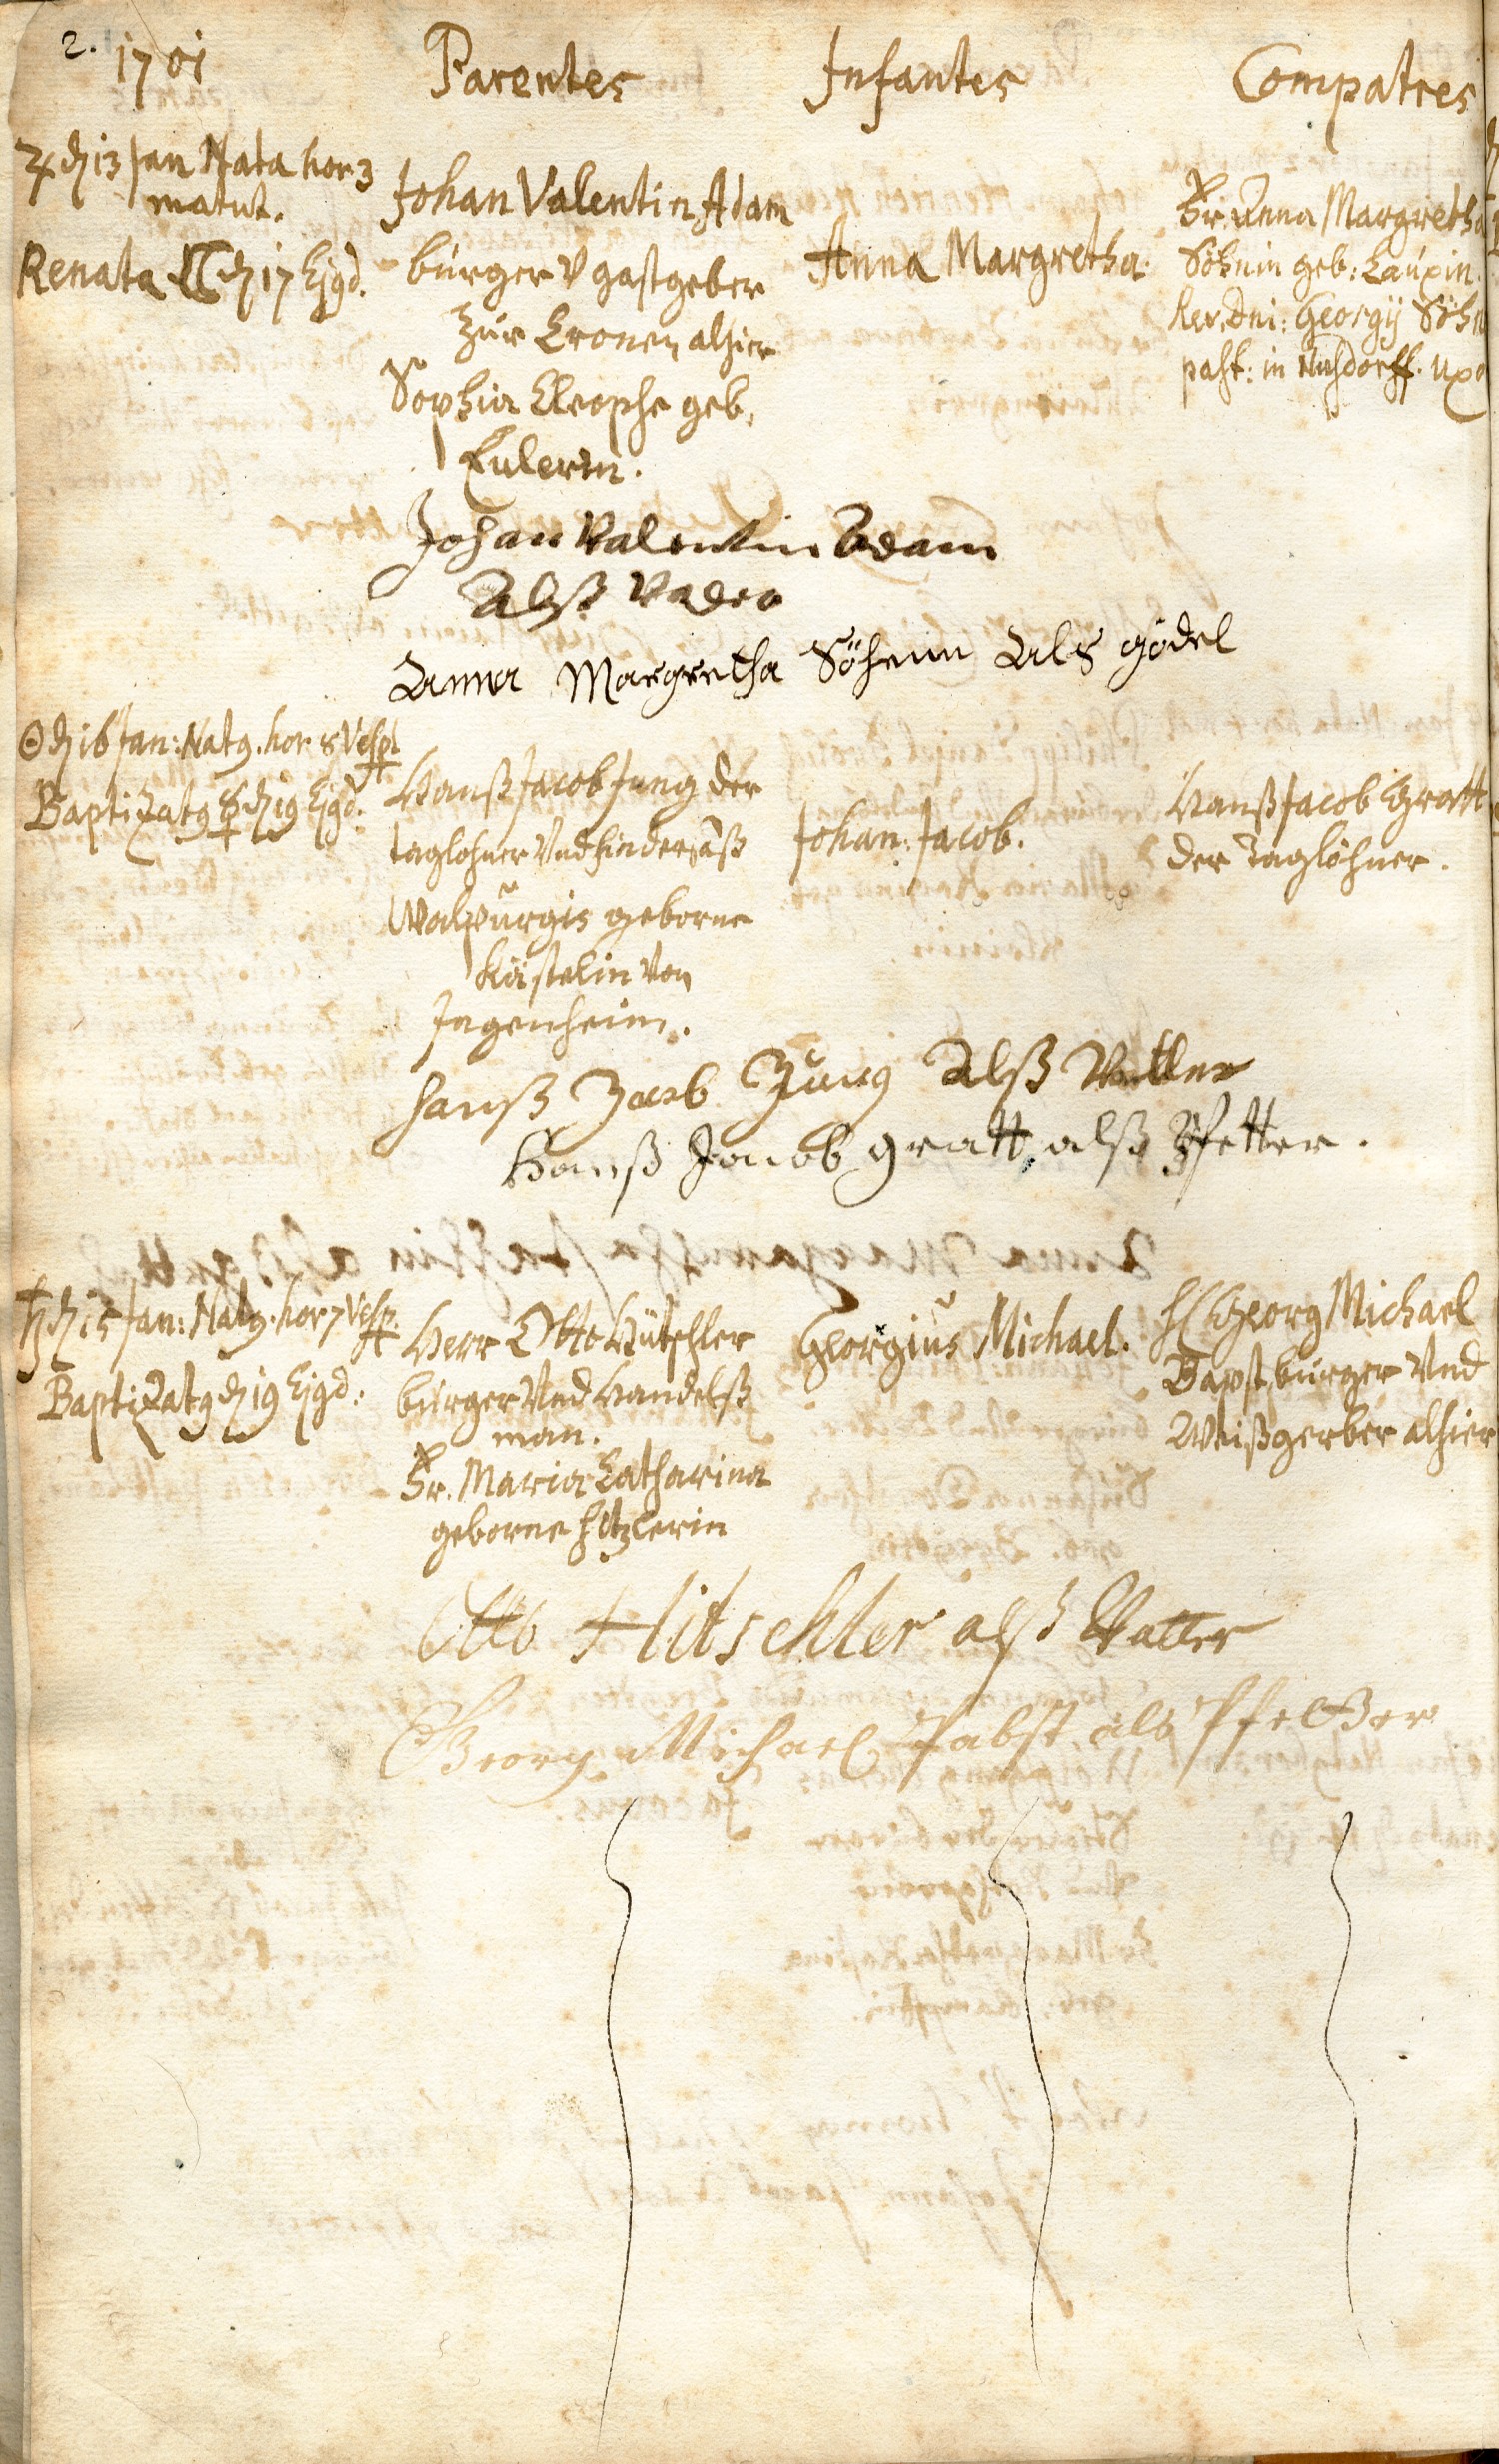 2.
1701
Parentes
Infantes
Compatres
♃ d 13 Jan Nata hor 3
matut.
Renata ☾ d 17 Ejqd.
Johan Valentin Adam
bürger V gastgeber
Zur Cronen alhier
Sophia Cleophe geb.
Eulerin.
Anna Margretha.
Fr. Anna Margretha
Söhnin geb: Lauxin.
Rev. Dni: Georgij Söhn
past: in Nusdorff. uxo
Johan Valentin Adam
Alß Vader
Anna Margretha Söhenn Als gödel
☉ d 16 Jan: Nat9. hor 8 Vesp
Baptizat9 ☿ d 19 Ejqd:
Hanß Jacob Jung der
taglohner Vnd hindersäß
Walpurgis geborne
Kästelin von
Ingenheim.
Johan: Jacob.
Hanß Jacob Gratt
der Taglöhner.
Hanß Jacob Jung Alß Vatter
Hanß Jacob gratt alß Pfetter.
♄ d 15 Jan: Nat9. hor 7 Vesp.
Baptizat9 d 19 Ejqd:
Herr Otto Hütschler
bürger Vnd Handelß
man.
Fr. Maria Catharina
geborne Hitzlerin
Georgius Michael.
H Georg Michael
Bapst burger Vnd
Weißgerber alhier
Otto Hitschler alß Vatter
Georg Michael Pabst als Pfetter